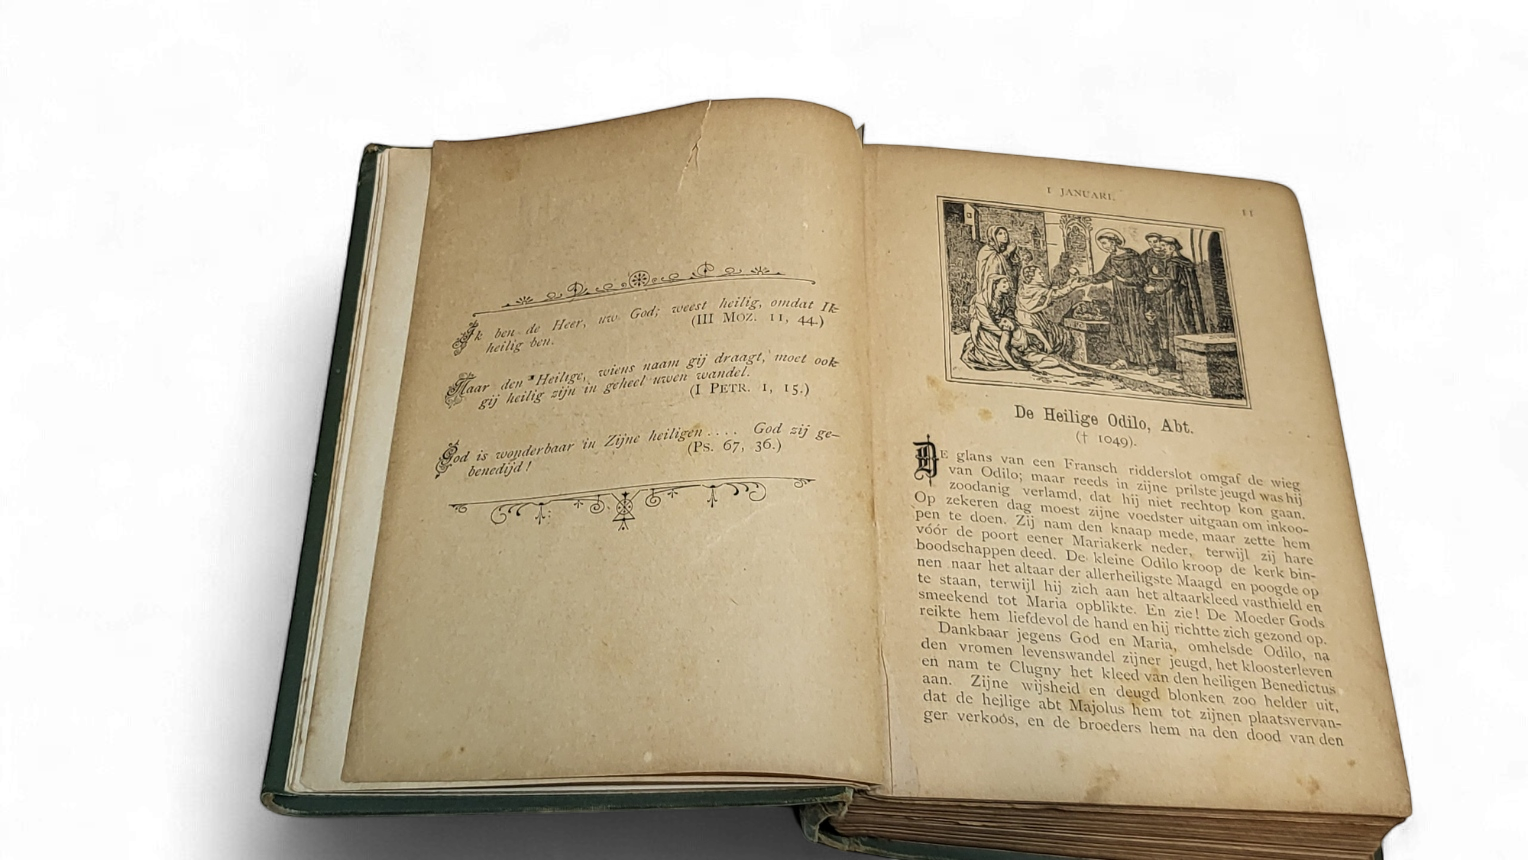 Ik ben de Heer, uw God; weest heilig, omdat Ik
heilig ben. (III Moz. 11, 44.)
Naar den Heilige, wiens naam gij draagt, moet ook
gij heilig zijn in geheel uwen wandel.
(I Petr. 1, 15.)
God is wonderbaar in Zijne heiligen .... God zij ge-
benedijd! (Ps. 67, 36.)
1 JANUARI.
11
De Heilige Odilo, Abt.
(† 1049).
DE glans van een Fransch ridderslot omgaf de wieg
van Odilo; maar reeds in zijne prilste jeugd was hij
zoodanig verlamd, dat hij niet rechtop kon gaan.
Op zekeren dag moest zijne voedster uitgaan om inkoo-
pen te doen. Zij nam den knaap mede, maar zette hem
vóór de poort eener Mariakerk neder, terwijl zij hare
boodschappen deed. De kleine Odilo kroop de kerk bin-
nen naar het altaar der allerheiligste Maagd en poogde op
te staan, terwijl hij zich aan het altaarkleed vasthield en
smeekend tot Maria opblikte. En zie! De Moeder Gods
reikte hem liefdevol de hand en hij richtte zich gezond op.
Dankbaar jegens God en Maria, omhelsde Odilo, na
den vromen levenswandel zijner jeugd, het kloosterleven
en nam te Clugny het kleed van den heiligen Benedictus
aan. Zijne wijsheid en deugd blonken zoo helder uit,
dat de heilige abt Majolus hem tot zijnen plaatsvervan-
ger verkoos, en de broeders hem na den dood van den